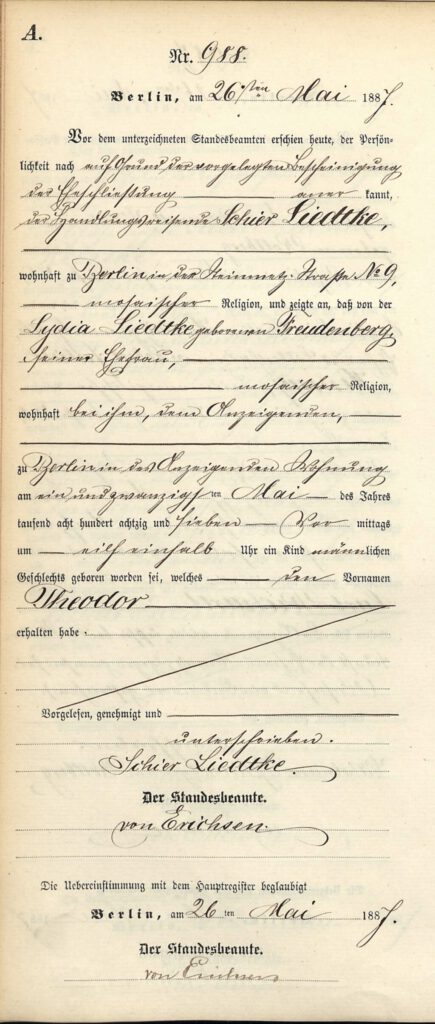 A.
Nr. 988.
Berlin, am 26sten Mai 1887.
Vor dem unterzeichneten Standesbeamten erschien heute, der Persön-
lichkeit nach auf Grund der vorgelegten Bescheinigung
der Eheschließung aner kannt,
der Handlungsreisende Schier Liedtke,
wohnhaft zu Berlin in der Steinmetz-Straße No 9,
mosaischer Religion, und zeigte an, daß von der
Lydia Liedtke geborenen Freudenberg,
seiner Ehefrau,
mosaischer Religion,
wohnhaft bei ihm, dem Anzeigenden,
zu Berlin in des Anzeigenden Wohnung
am ein und zwanzigsten Mai des Jahres
tausend acht hundert achtzig und sieben Vor mittags
um eilf einhalb Uhr ein Kind männlichen
Geschlechts geboren worden sei, welches den Vornamen
Theodor
erhalten habe.
Vorgelesen, genehmigt und
unterschrieben.
Schier Liedtke.
Der Standesbeamte.
von Erichsen.
Die Uebereinstimmung mit dem Hauptregister beglaubigt
Berlin, am 26 ten Mai 1887.
Der Standesbeamte.
von Erichsen